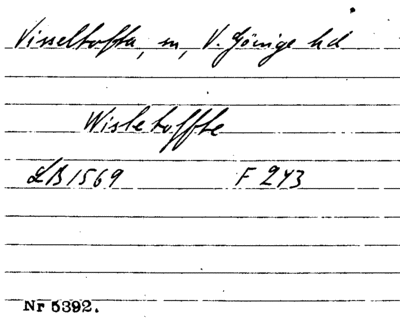 Visseltofta, sn, V. Göinge hd
Wisletoffte
LB 1569 F 243
Nr 5392.